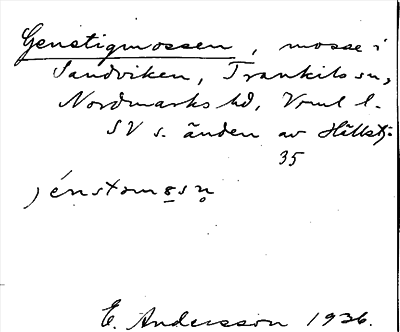 Genstigmossen, mosse i
Sandviken, Trankils sn,
Nordmarks hd, Vrml l.
SV s. änden av Hällstj.
35
jénstomαsn̥
E. Andersson 1936.